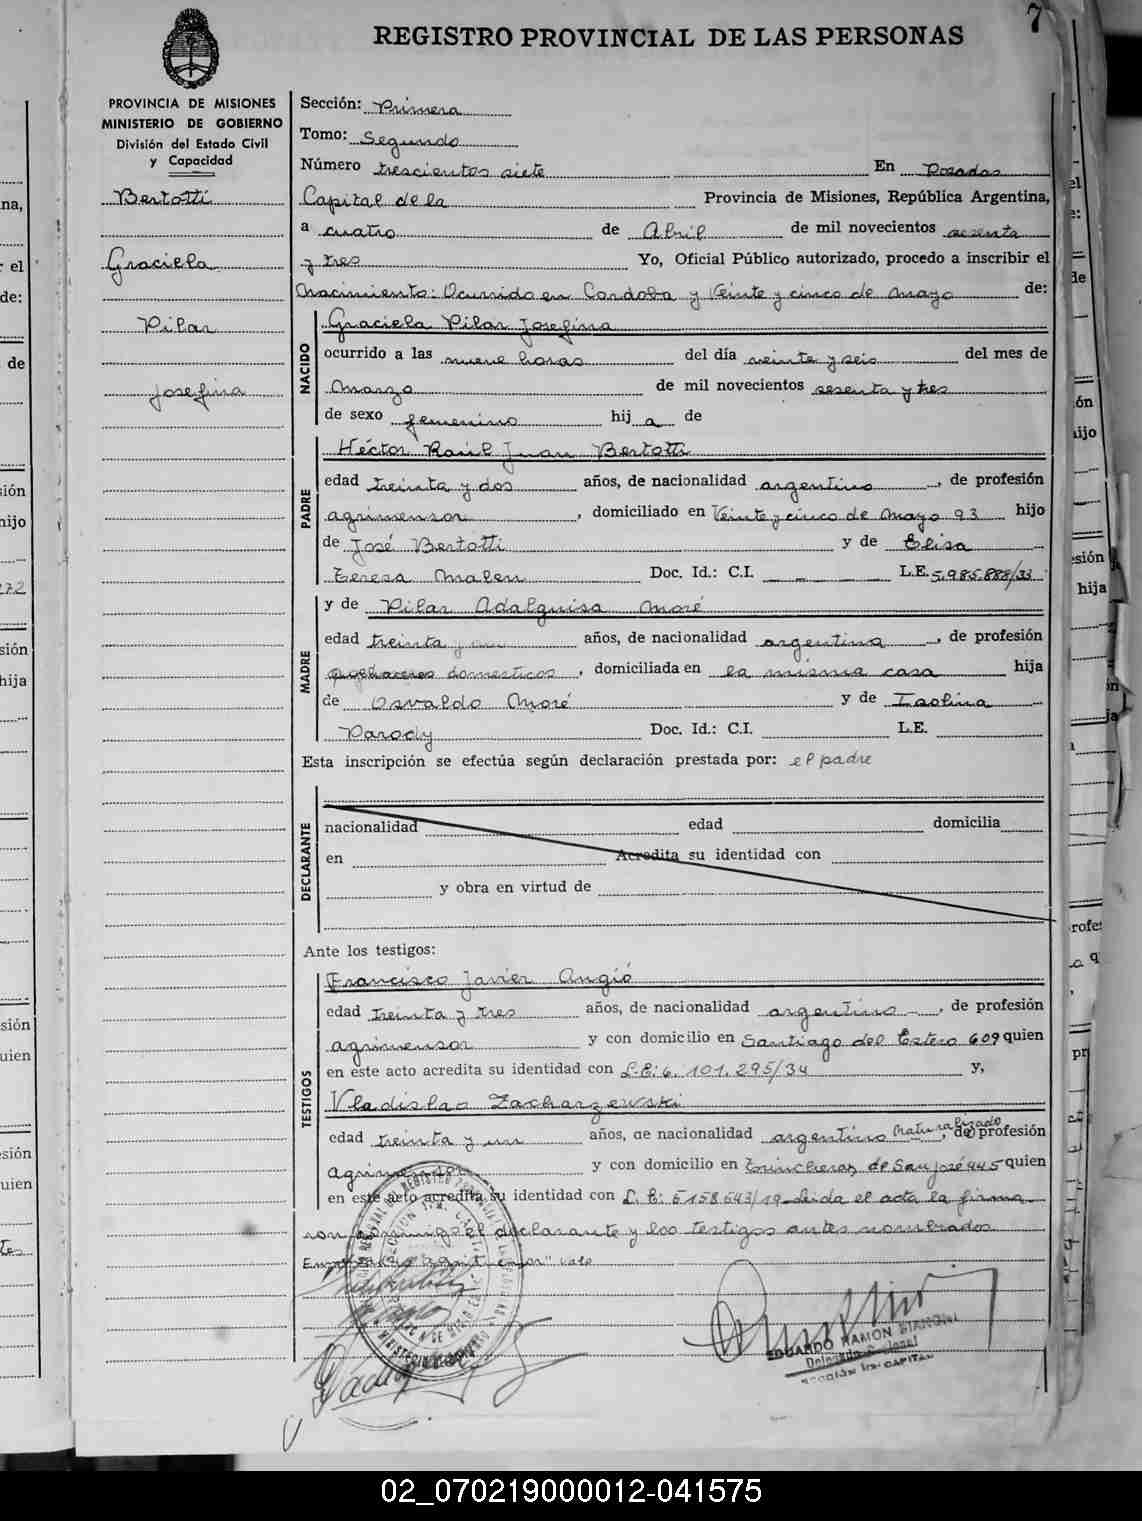 7
REGISTRO PROVINCIAL DE LAS PERSONAS
PROVINCIA DE MISIONES
MINISTERIO DE GOBIERNO
División del Estado Civil
y Capacidad
Bertotti
Graciela
Pilar
Josefina
Sección: Primera
Tomo: Segundo
Número trescientos siete En Posadas
Capital de la Provincia de Misiones, República Argentina,
a cuatro de Abril de mil novecientos sesenta
y tres Yo, Oficial Público autorizado, procedo a inscribir el
Nacimiento: Ocurrido en Cordoba y Veinte y cinco de Mayo de:
NACIDO
Graciela Pilar Josefina
ocurrido a las nueve horas del día veinte y seis del mes de
Marzo de mil novecientos sesenta y tres
de sexo femenino hij a de
PADRE
Héctor Raúl Juan Bertotti
edad treinta y dos años, de nacionalidad argentino, de profesión
agrimensor, domiciliado en Veinte y cinco de Mayo 93 hijo
de José Bertotti y de Elisa
Teresa Malen Doc. Id.: C.I. — L.E. 5.985.888/33
MADRE
y de Pilar Adalguisa Moré
edad treinta y un años, de nacionalidad argentina, de profesión
quehaceres domesticos, domiciliada en la misma casa hija
de Osvaldo Moré y de Isolina
Parody Doc. Id.: C.I. L.E.
Esta inscripción se efectúa según declaración prestada por: el padre
DECLARANTE
nacionalidad edad domicilia
en Acredita su identidad con
y obra en virtud de
Ante los testigos:
TESTIGOS
Francisco Javier Angió
edad treinta y tres años, de nacionalidad argentino, de profesión
agrimensor y con domicilio en Santiago del Estero 609 quien
en este acto acredita su identidad con L.E: 6.101.295/34 y,
Vladislao Zacharzewski
edad treinta y un años, de nacionalidad argentino naturalizado, de profesión
agrimensor y con domicilio en Trincheras de San José 445 quien
en este acto acredita su identidad con L.E: 5158643/19 Leida el acta la firma
con conmigo el declarante y los testigos antes nombrados
"agrimensor" vale
EDUARDO RAMON BIANCHI
Delegado Seccional
SECCIÓN 1ra. CAPITAL
02_070219000012-041575